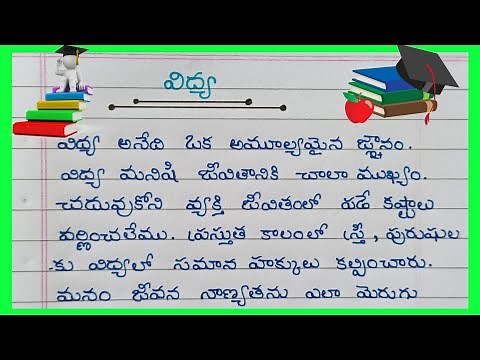 విద్య
విద్య అనేది ఒక అమూల్యమైన జ్ఞానం.
విద్య మనిషి జీవితానికి చాలా ముఖ్యం.
చదువుకోని వ్యక్తి జీవితంలో పడే కష్టాలు
వర్ణించలేము. ప్రస్తుత కాలంలో స్త్రీ, పురుషుల
-కు విద్యలో సమాన హక్కులు కల్పించారు.
మనం జీవన నాణ్యతను ఎలా మెరుగు